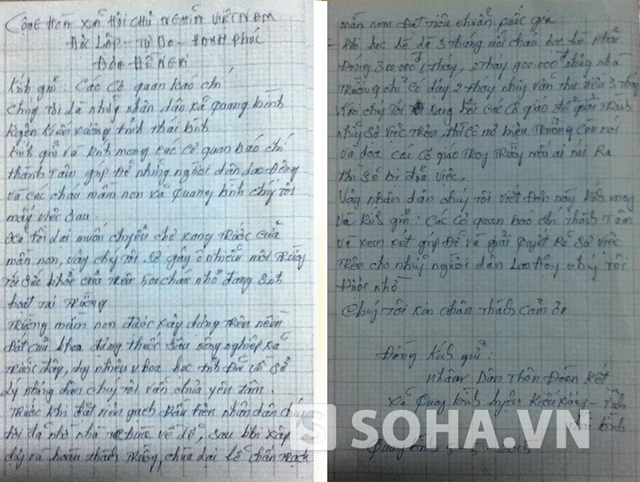 CỘNG HÒA XÃ HỘI CHỦ NGHĨA VIỆT NAM
Độc Lập - Tự Do - Hạnh Phúc
Kính gửi: Các Cơ quan báo chí
Chúng tôi là những nhân dân xã Quang bình
huyện kiến xương tỉnh thái bình
kính gửi và kính mong các cơ quan báo chí
thành tâm giúp đỡ những người dân lao động
và các cháu mầm non xã Quang bình chúng tôi
mấy việc sau
Xã tôi lại muốn chuyển chợ xang trước cửa
mầm non, vậy chúng tôi sợ gây ô nhiễm môi trường
tới sức khỏe của trên 500 cháu nhỏ đang sinh
hoạt tại trường
Trường mầm non được xây dựng trên nền
đất của kho đựng thuốc sâu nông nghiệp xã
trước đây, tuy nhiên khoa học tỉnh đã về sử
lý nhưng dân chúng tôi vẫn chưa yên tâm.
Trước khi đặt viên gạch đầu tiên nhân dân chúng
tôi đã nhờ nhà chức về để, sau khi xây
dựng và hoàn thành trường, chưa lại
mầm non đạt tiêu chuẩn quốc gia
khi học hè là 3 tháng mỗi cháu học hè phải
đóng 300.000/1 tháy, 2 tháy 900.000 nhưng nhà
Trường chỉ có dạy 2 tháy nhưng vẫn thu tiền 3 tháy
các cô giáo để giải trình
những sự việc trên, thì cô
và dọa các cô giáo trong trường nếu ai nói ra
thì sẽ bị đuổi việc.
Vậy nhân dân chúng tôi viết đơn này kính mong
và kính gửi: Các cơ quan báo chí thành tâm
và xem xét giúp đỡ và giải quyết rõ sự việc
trên cho những người dân lao động chúng tôi
được nhờ
Chúng tôi xin chân thành cảm ơn
Đồng kính gửi:
Nhân Dân Thôn Đoàn kết
Xã Quang bình huyện kiến xương - Tỉnh
thái bình
SOHA.VN